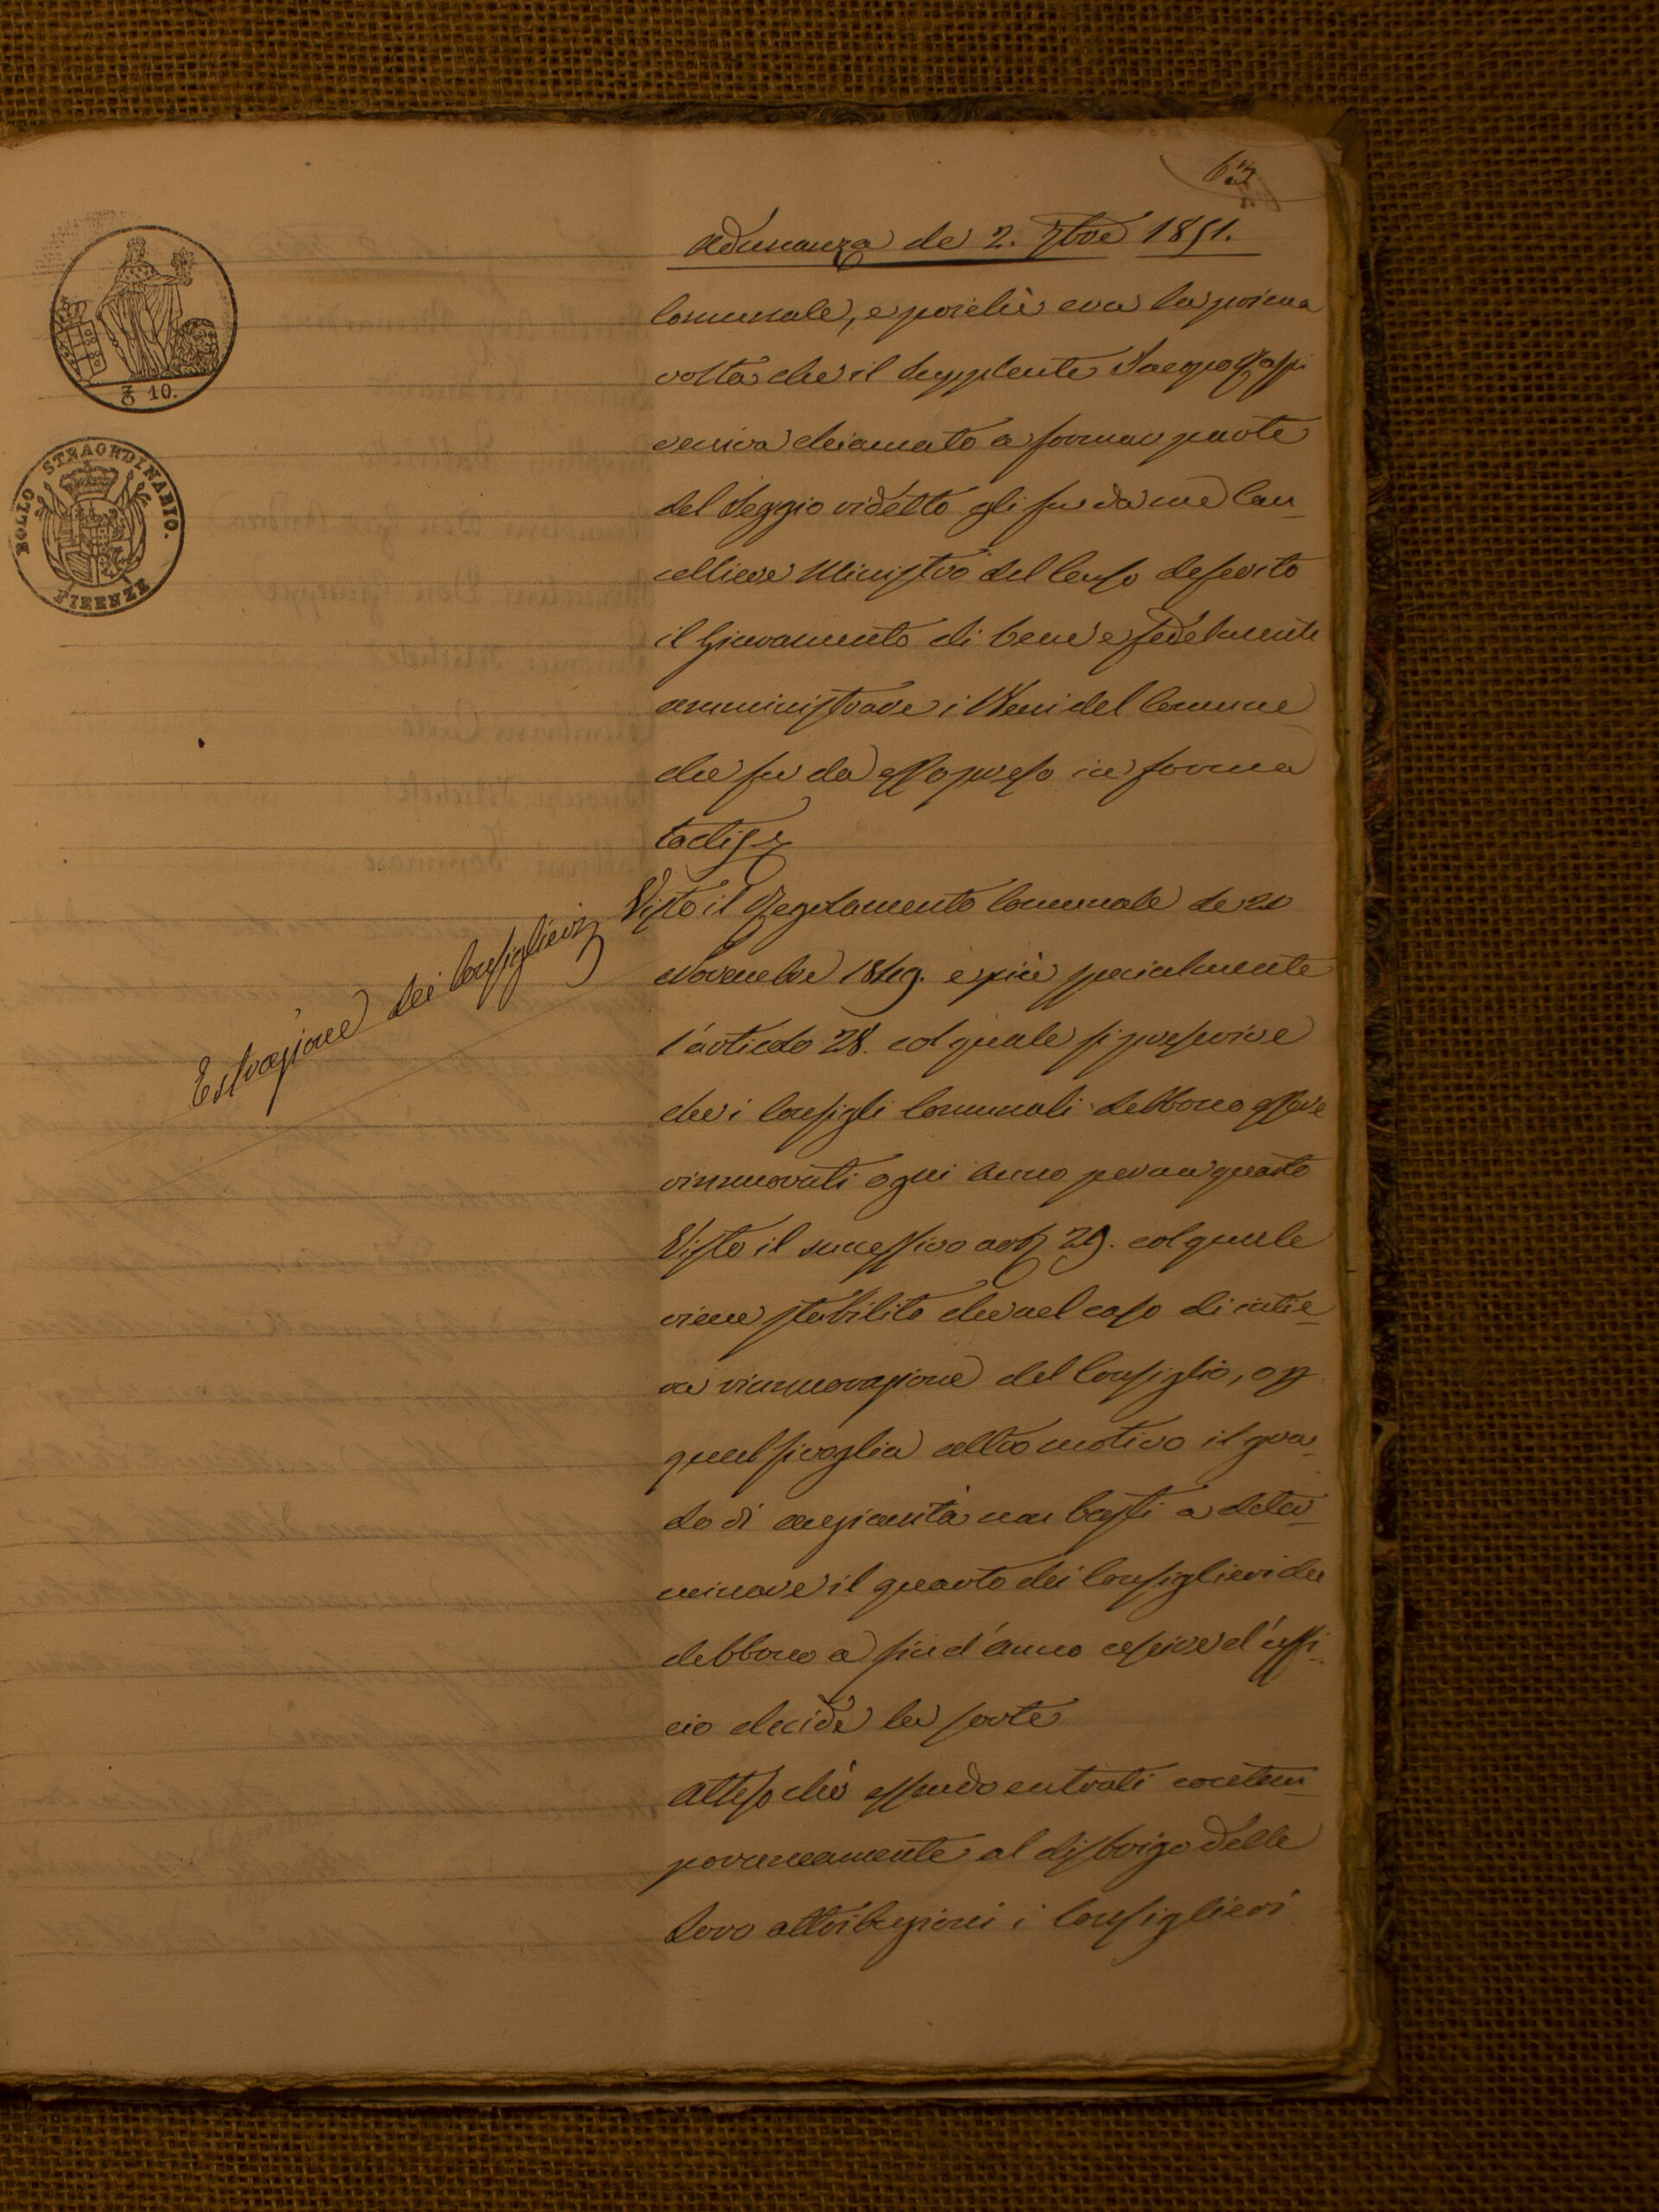 63
Adunanza de' 2. 7bre 1851.
Comunale, e poichè era la prima
volta che il Supplente Jacopo Rassi
veniva chiamato a formar parte
del Seggio ridetto gli fu da me Can-
celliere Ministro del Censo deferito
il Giuramento di bene e fedelmente
amministrare i Beni del Comune
che fu da esso preso in forma
tactis
Visto il Regolamento Comunale de 20
Novembre 1849. e più specialmente
l'articolo 28. col quale si prescrive
che i Consigli Comunali debbono essere
rinnuovati ogni anno per un quarto
Visto il successivo art 29. col quale
viene stabilito che nel caso di intie-
ra rinnuovazione del Consiglio, o p
qualsivoglia altro motivo il gra-
do di anzianità non basti a deter-
minare il quarto dei Consiglieri che
debbono a fin d'anno escire d'uffi-
cio decide la sorte
Attesochè essendo entrati contem-
poraneamente al disbrigo delle
loro attribuzioni i Consiglieri
Estrazione dei Consiglieri
10.
BOLLO STRAORDINARIO.
FIRENZE